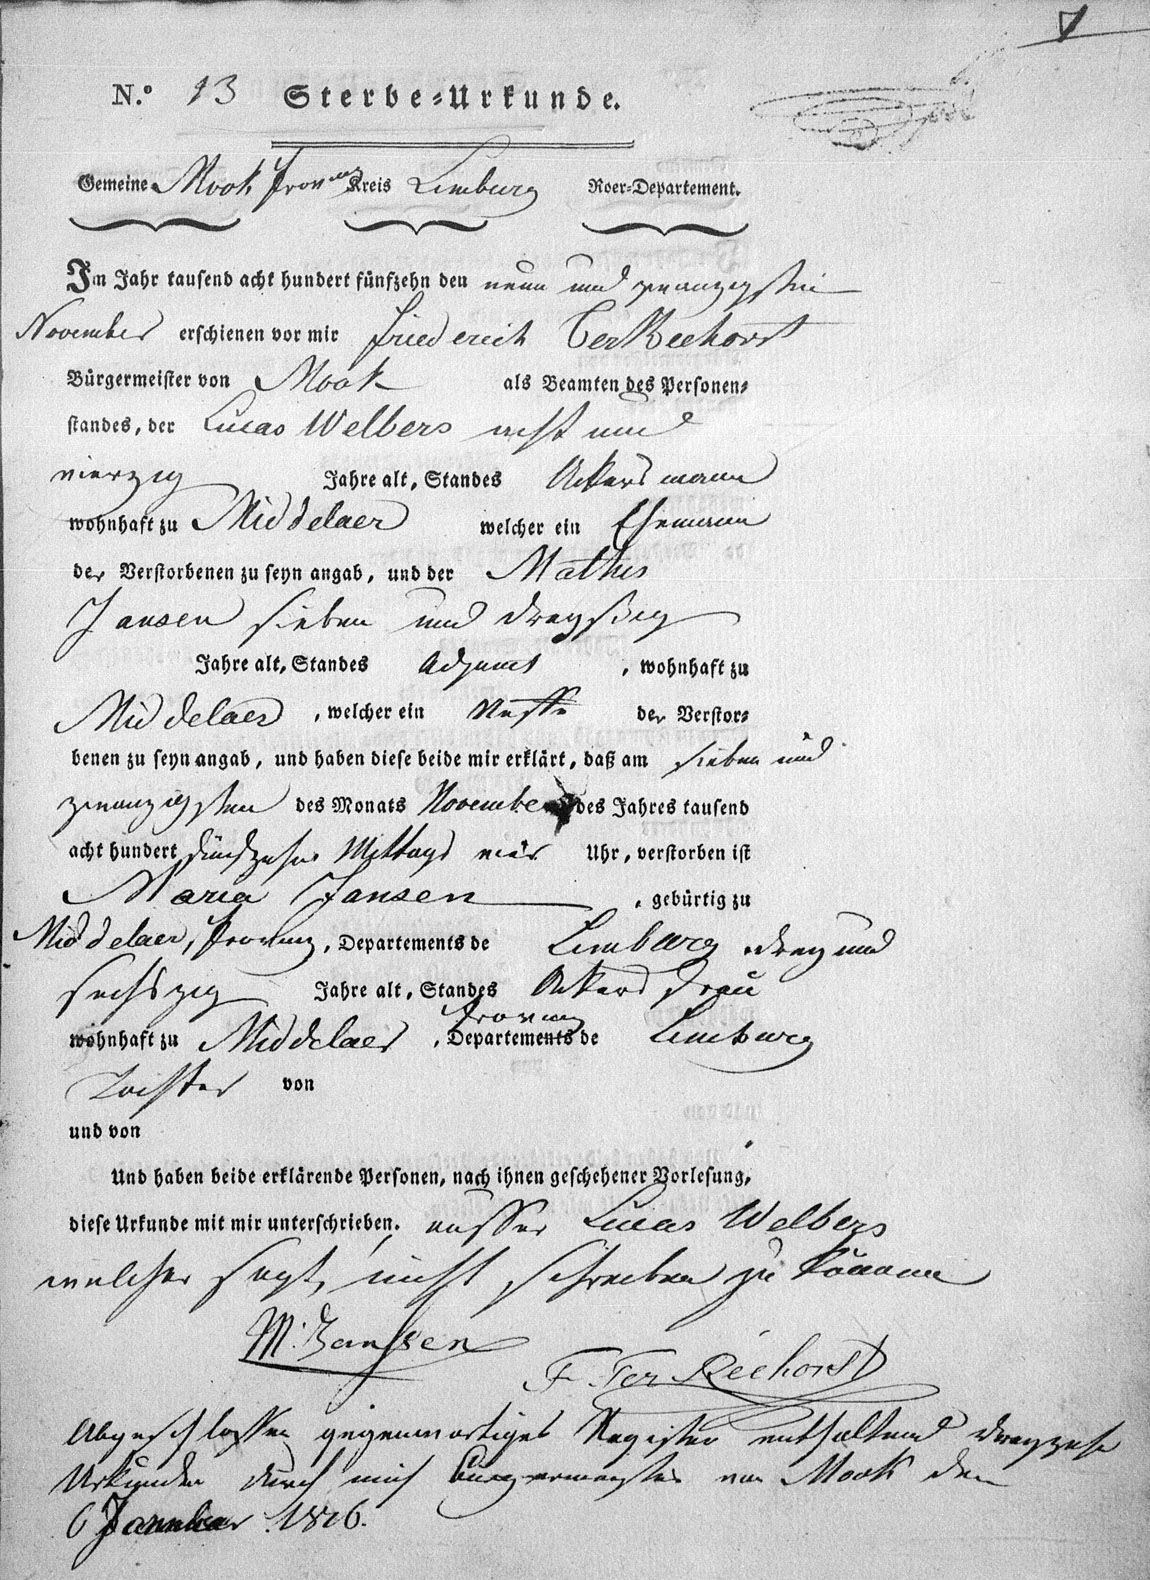 N.º 13 Sterbe=Urkunde.
Gemeine Mook Provinz Kreis Limburg Roer=Departement.
Im Jahr tausend acht hundert fünfzehn den neun und zwanzigsten
November erschienen vor mir Friederich Ter Reehorst
Bürgermeister von Mook als Beamten des Personen=
standes, der Lucas Welbers acht und
vierzig Jahre alt, Standes Ackersmann
wohnhaft zu Middelaer welcher ein Ehemann
der Verstorbenen zu seyn angab, und der Mathis
Jansen sieben und dreyssig
Jahre alt, Standes Adjunct , wohnhaft zu
Middelaer , welcher ein Neffe der Verstor=
benen zu seyn angab, und haben diese beide mir erklärt, daß am sieben und
zwanzigsten des Monats November des Jahres tausend
acht hundert fünfzehn Mittags vier Uhr, verstorben ist
Maria Jansen , gebürtig zu
Middelaer, Provinz, Departements de Limburg drey und
sechszig Jahre alt, Standes Ackersfrau
Provinz
wohnhaft zu Middelaer , Departements de Limburg
Tochter von
und von
Und haben beide erklärende Personen, nach ihnen geschehener Vorlesung,
diese Urkunde mit mir unterschrieben. ausser Lucas Welbers
welcher sagt, nicht schreiben zu können
M. Janssen
F. Ter Reehorst
Abgeschlossen gegenwartiges Register enthaltend dreyzehn
Urkunden durch mich Burgermeyster von Mook den
6 Januar 1816.